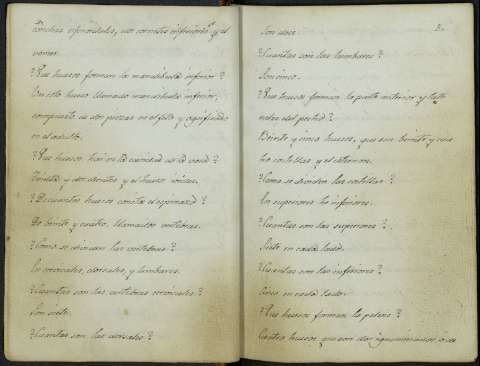 conchas esfenoidales, dos cornetes inferiores y el
vomer.
¿Que huesos forman la mandibula inferior?
Un solo hueso llamado mandibula inferior,
compuesto de dos piezas en el feto y osificado
en el adulto.
¿Que huesos hai en la cavidad de la boca?
Treinta y dos dientes y el hueso ioides.
¿De cuantos huesos consta el espinazo?
De veinte y cuatro, llamados vertebras.
¿Como se dividen las vertebras?
En cervicales, dorsales, y lumbares.
¿Cuantas son las vertebras cervicales?
Son siete.
¿Cuantas son las dorsales?
3.
Son doce
¿Cuantas son las lumbares?
Son cinco.
¿Que huesos forman la parte anterior y late
rales del pecho?
Veinte y cinco huesos, que son veinte y cua
tro costillas y el esternon.
¿Como se dividen las costillas?
En superiores é inferiores.
¿Cuantas son las superiores?
Siete en cada lado.
¿Cuantas son las inferiores?
Cinco en cada lado.
¿Que huesos forman la pelvis?
Cuatro huesos, que son dos